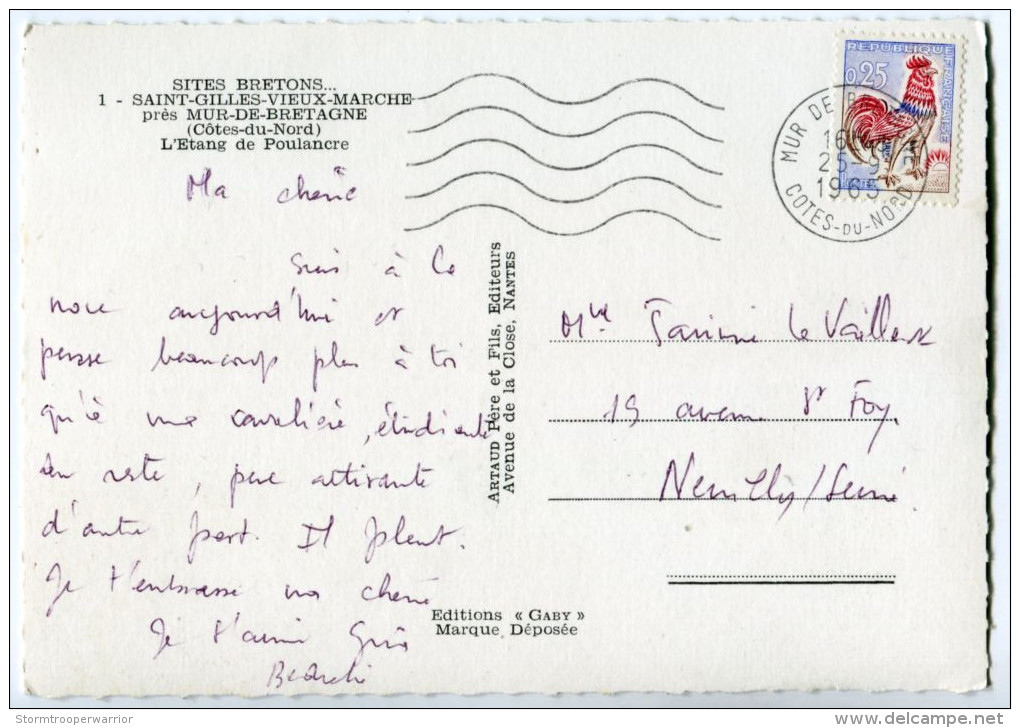 SITES BRETONS...
1 - SAINT-GILLES-VIEUX-MARCHE
près MUR-DE-BRETAGNE
(Côtes-du-Nord)
L'Etang de Poulancre
REPUBLIQUE FRANÇAISE
0,25
MUR DE B
16
25-9
1965
COTES-DU-NORD
Ma chérie
Suis à la
noce aujourd'hui et
pense beaucoup plus à toi
qu'à ma cavalière, étudiante
en reste, peu attirante
d'autre part. Il pleut.
Je t'embrasse ma chérie
Je t'aime
ARTAUD Père et Fils, Editeurs
Avenue de la Close, NANTES
Mlle Janine Le Vaillant
19 avenue Ste Foy
Neuilly/Seine
Editions « GABY »
Marque Déposée
Stormtrooperwarrior
delcampe.net